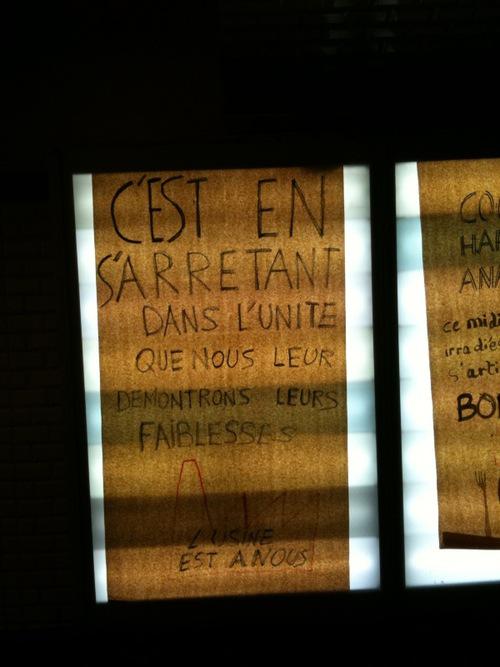 C'EST EN
S'ARRETANT
DANS L'UNITE
QUE NOUS LEUR
DEMONTRONS LEURS
FAIBLESSES
L'USINE
EST A NOUS
ce midi
BO